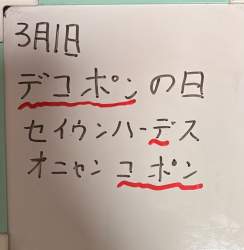 3月1日
デコポンの日
セイウンハーデス
オニャンコポン